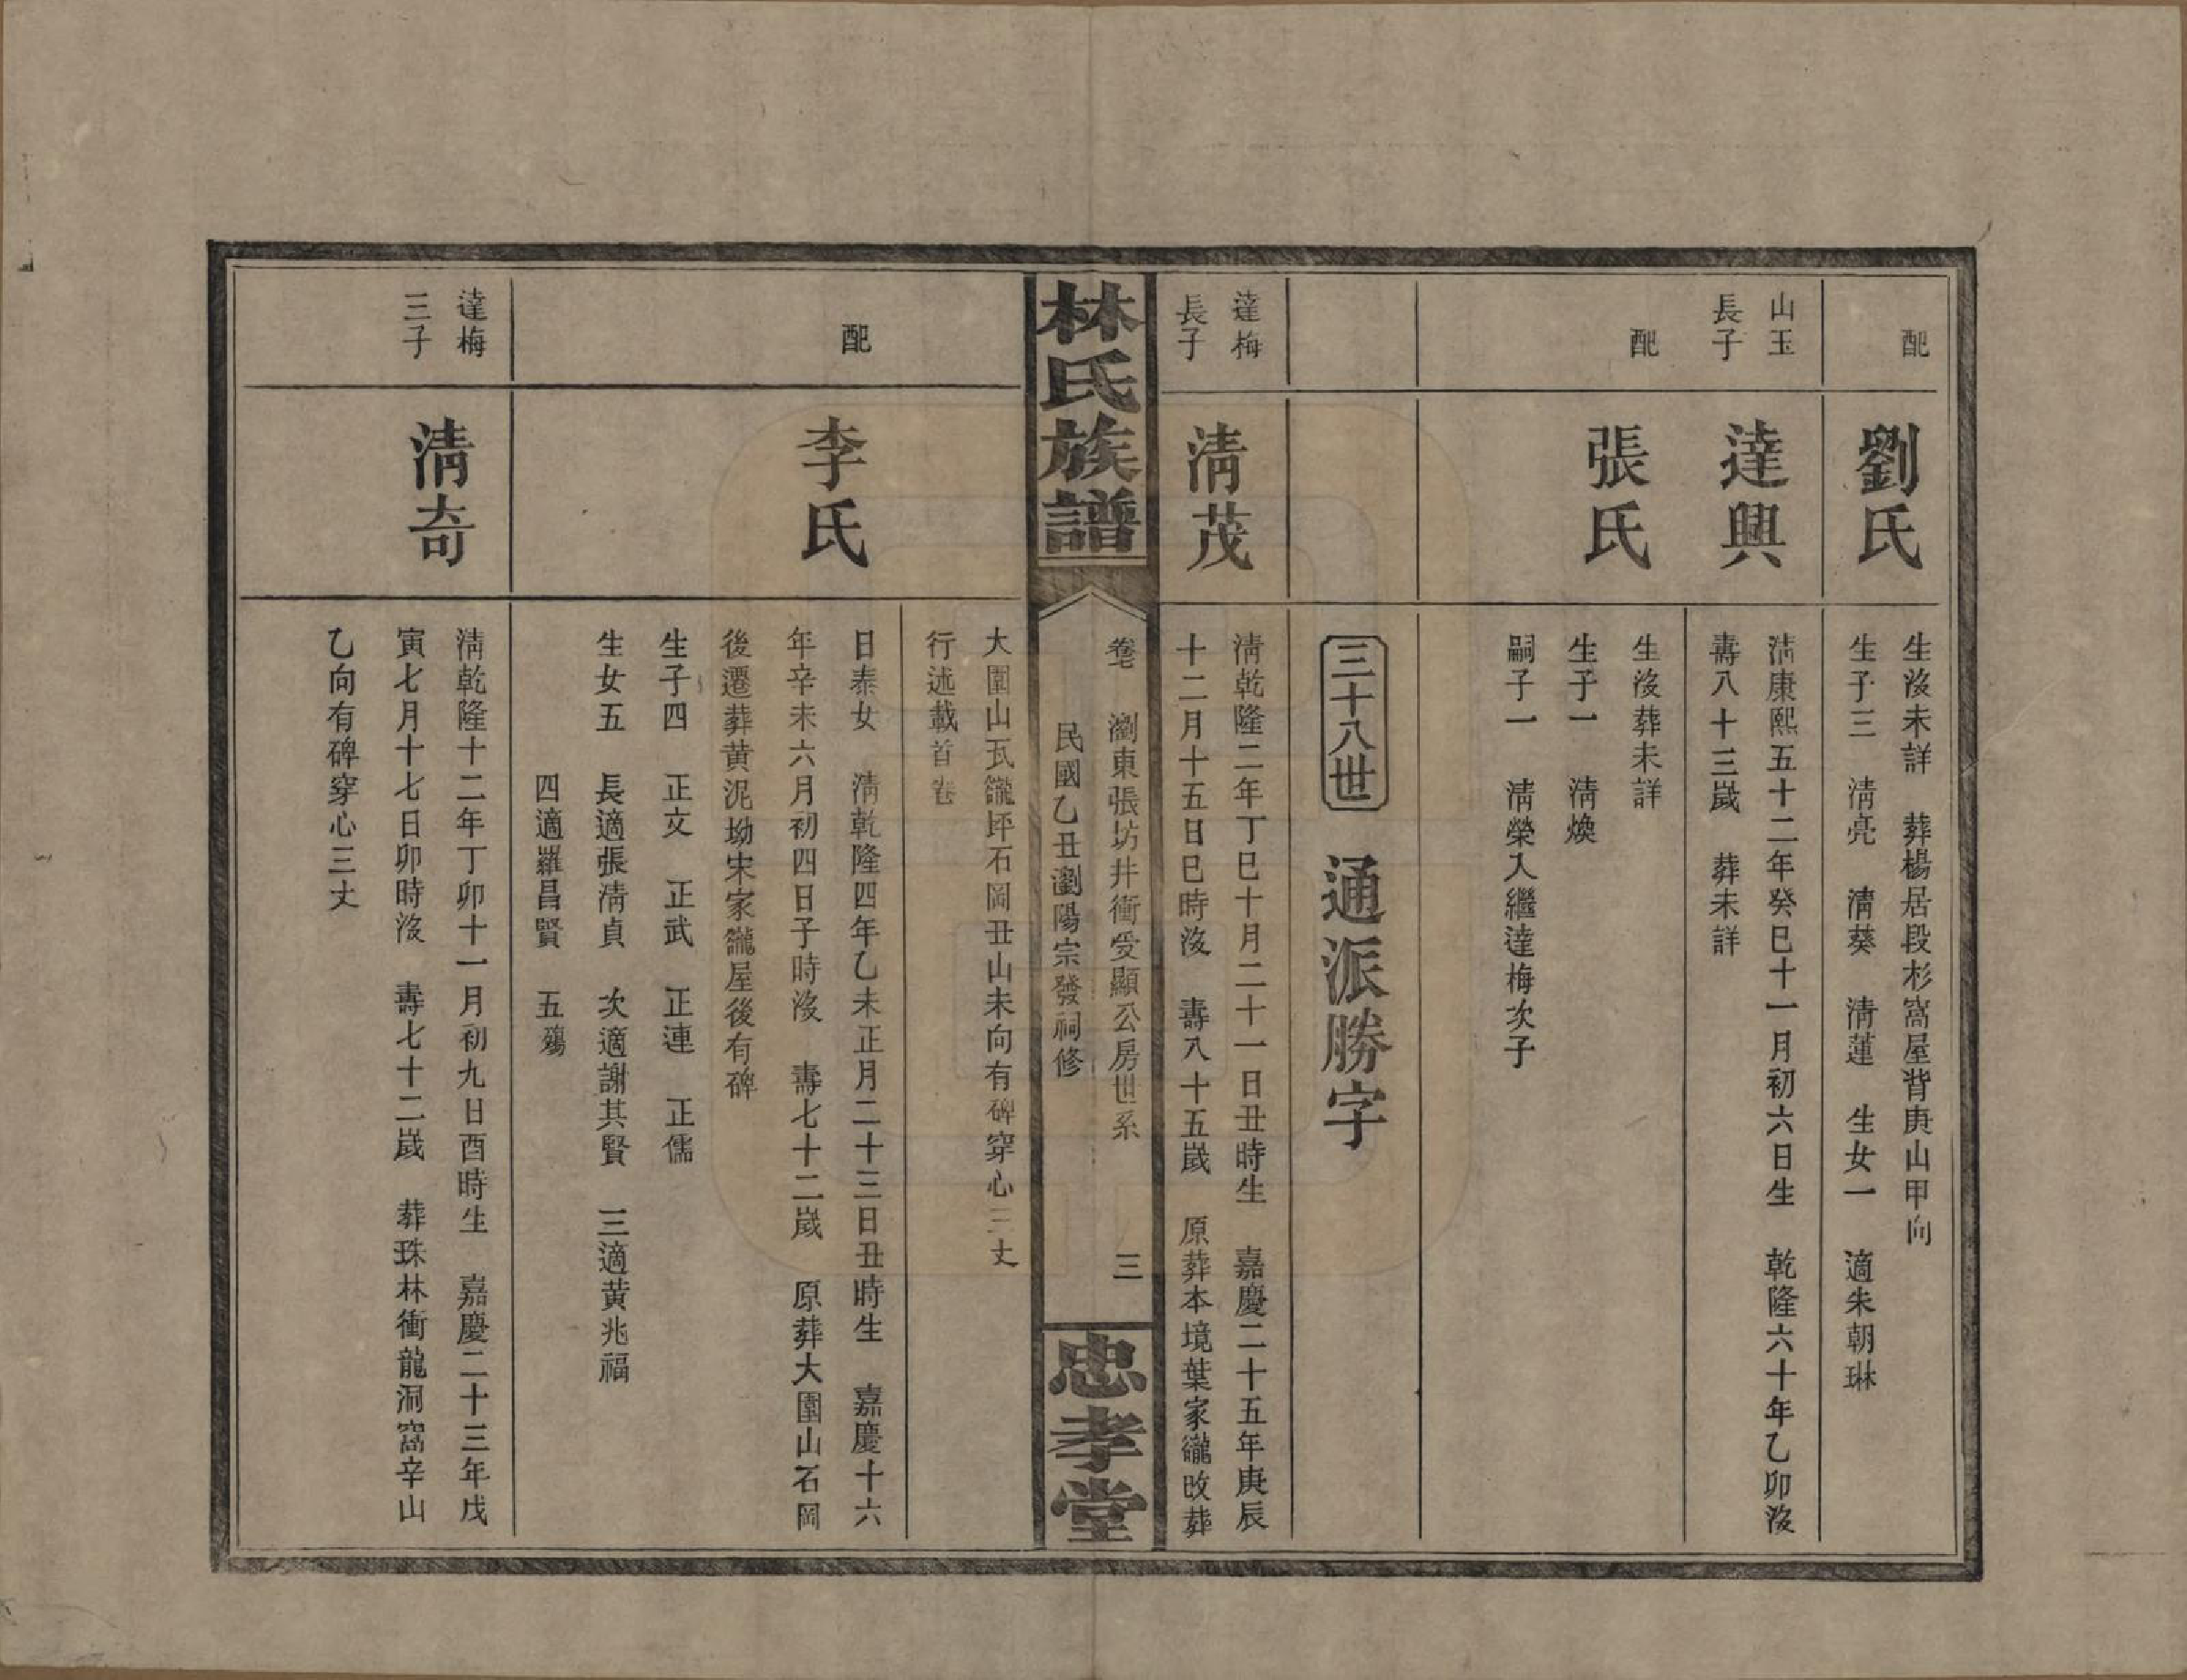 配
劉氏
生沒未詳　葬楊居段杉窩屋背庚山甲向
生子三　清亮　清葵　清蓮　生女一　適朱朝琳
山玉
長子
達興
清康熙五十二年癸巳十一月初六日生　乾隆六十年乙卯沒
壽八十三嵗　葬未詳
配
張氏
生沒葬未詳
生子一　清煥
嗣子一　清榮入繼達梅次子
三十八世　通派勝字
達梅
長子
清茂
清乾隆二年丁巳十月二十一日丑時生　嘉慶二十五年庚辰
十二月十五日巳時沒　壽八十五嵗　原葬本境葉家徿改葬
林氏族譜
卷　瀏東張坊井衝受顯公房世系　三
民國乙丑瀏陽宗發祠修
忠孝堂
大圍山瓦徿坪石岡丑山未向有碑穿心三丈
行述載首卷
配
李氏
日泰女　清乾隆四年乙未正月二十三日丑時生　嘉慶十六
年辛未六月初四日子時沒　壽七十二嵗　原葬大圍山石岡
後遷葬黄泥坳宋家徿屋後有碑
生子四　正文　正武　正連　正儒
生女五　長適張清貞　次適謝其賢　三適黄兆福
四適羅昌賢　五殤
達梅
三子
清奇
清乾隆十二年丁卯十一月初九日酉時生　嘉慶二十三年戊
寅七月十七日卯時沒　壽七十二嵗　葬珠林衝龍洞窩辛山
乙向有碑穿心三丈